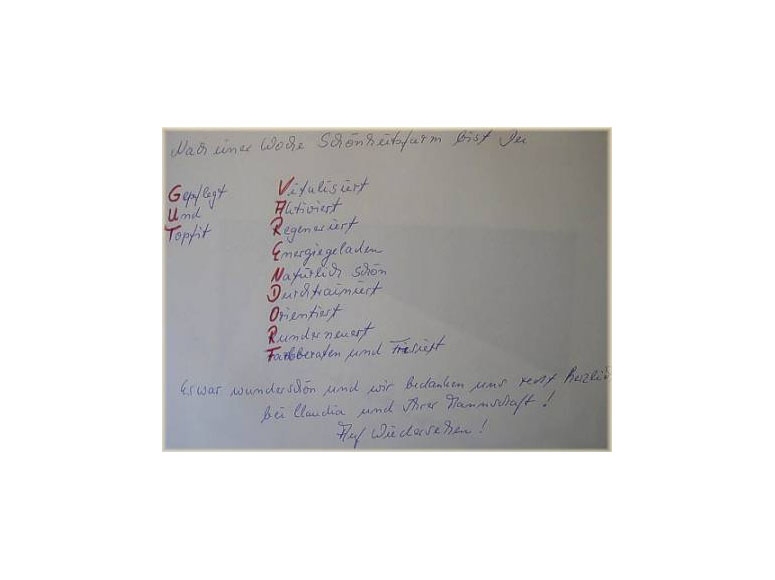 Nach einer Woche Schönheitsfarm bist Du
Gepflegt
Und
Topfit
Vitalisiert
Aktiviert
Regeneriert
Energiegeladen
Natürlich schön
Durchtrainiert
Orientiert
Runderneuert
Farbberaten und Frisiert
Es war wunderschön und wir bedanken uns recht herzlich
bei Claudia und Ihrer Mannschaft!
Auf Wiedersehen!